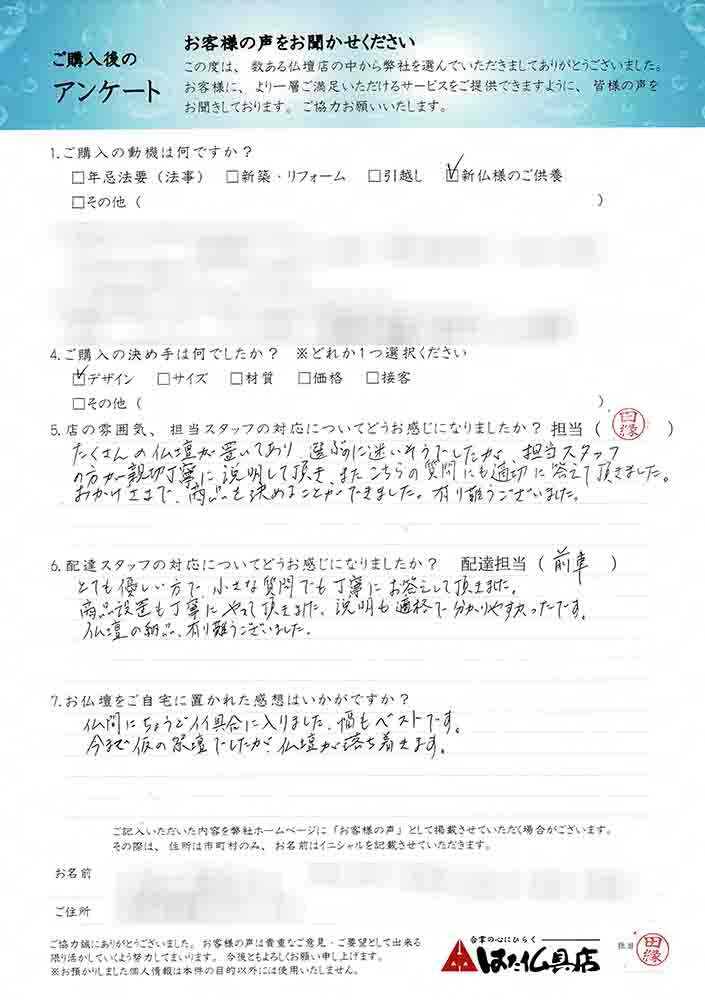 ご購入後の
アンケート
お客様の声をお聞かせください
この度は、数ある仏壇店の中から弊社を選んでいただきましてありがとうございました。
お客様に、より一層ご満足いただけるサービスをご提供できますように、皆様の声を
お聞きしております。ご協力お願いいたします。
1.ご購入の動機は何ですか?
□年忌法要(法事) □新築・リフォーム □引越し ☑新仏様のご供養
□その他( )
4.ご購入の決め手は何でしたか? ※どれか1つ選択ください
☑デザイン □サイズ □材質 □価格 □接客
□その他( )
5.店の雰囲気、担当スタッフの対応についてどうお感じになりましたか?担当(田縁)
たくさんの仏壇が置いてあり 選ぶのに迷いそうでしたが、担当スタッフ
の方が親切丁寧に説明して頂き、またこちらの質問にも適切に答えて頂きました。
おかげさまで、商品を決めることができました。有り難うございました。
6.配達スタッフの対応についてどうお感じになりましたか? 配達担当(前車)
とても優しい方で、小さな質問でも丁寧にお答えして頂きました。
商品設置も丁寧にやって頂きました。説明も適格で分かりやすかったです。
仏壇の納品、有り難うございました。
7.お仏壇をご自宅に置かれた感想はいかがですか?
仏間にちょうどイイ具合に入りました、幅もベストです。
今まで仮の祭壇でしたが、仏壇が落ち着きます。
ご記入いただいた内容を弊社ホームページに「お客様の声」として掲載させていただく場合がございます。
その際は、住所は市町村のみ、お名前はイニシャルを記載させていただきます。
お名前
ご住所
ご協力誠にありがとうございました。お客様の声は貴重なご意見・ご要望として出来る
限り活かしていくよう努力してまいります。今後ともよろしくお願い申し上げます。
※お預かりしました個人情報は本件の目的以外には使用いたしません。
合掌の心にひらく
はた仏具店
担当 田縁